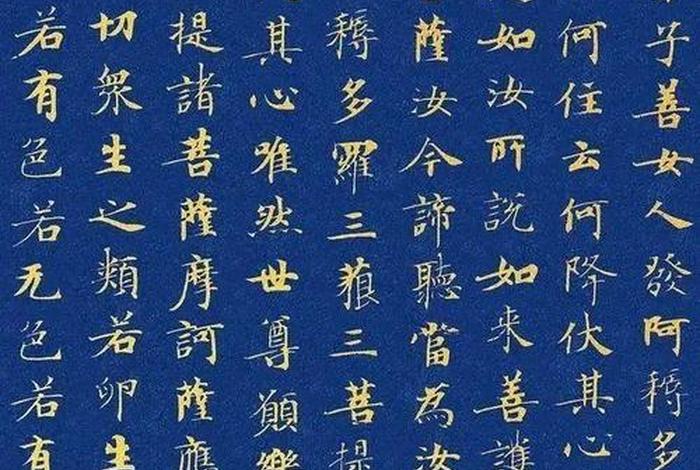 子善女人發阿耨多
何住云何降伏其心
如汝所說如來善護
薩汝今諦聽當為汝
耨多羅三藐三菩提
其心唯然世尊願樂
提諸菩薩摩訶薩應
切衆生之類若卵生
若有色若无色若有